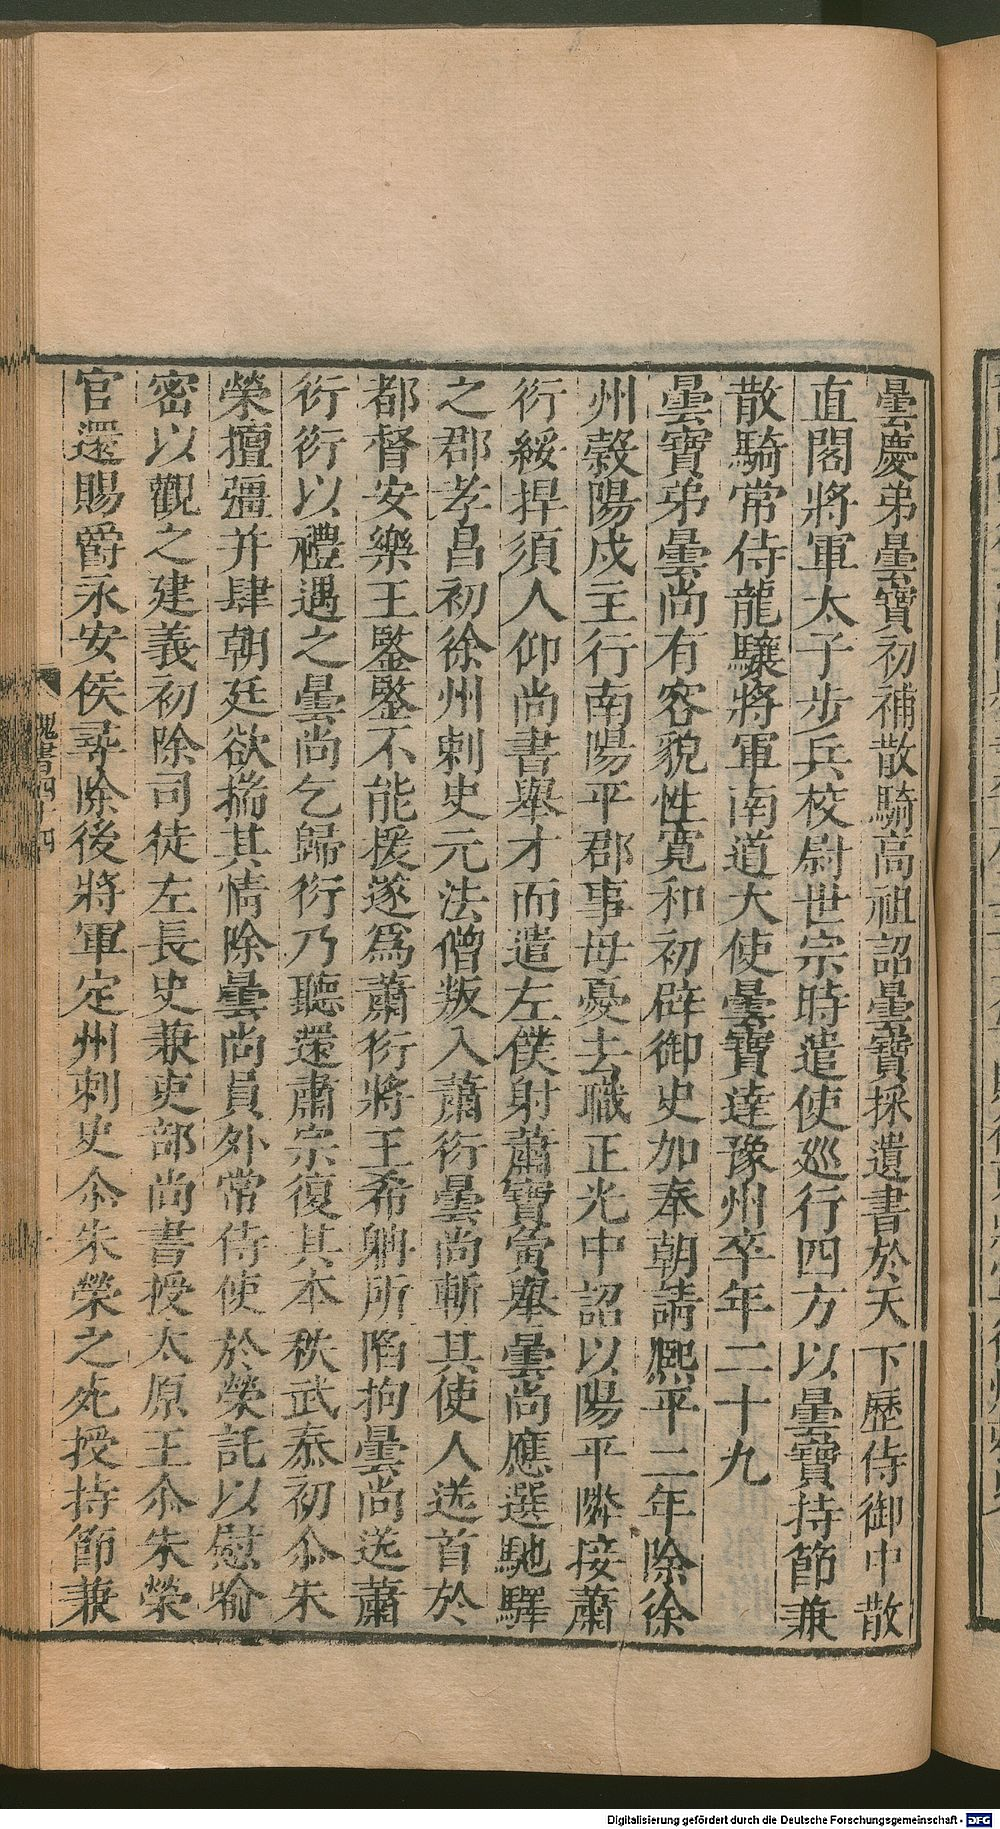 曇慶弟曇寶初補散騎高祖詔曇寶採遺書於天下歷侍御中散
直閣將軍太子步兵校尉世宗時遣使巡行四方以曇寶持節兼
散騎常侍龍驤將軍南道大使曇寶達豫州卒年二十九
曇寶弟曇尚有容貌性寬和初辟御史加奉朝請熙平二年除徐
州榖陽戍主行南陽平郡事母憂去職正光中詔以陽平隣接蕭
衍綏捍須人仰尚書舉才而遣左僕射蕭寶夤舉曇尚應選馳驛
之郡孝昌初徐州刺史元法僧叛入蕭衍曇尚斬其使人送首於
都督安樂王鑒鑒不能援遂爲蕭衍將王希𨈭所陷拘曇尚送蕭
衍衍以禮遇之曇尚乞歸衍乃聽還肅宗復其本秩武泰初尒朱
榮擅彊并肆朝廷欲揣其情除曇尚員外常侍使於榮託以慰喻
密以觀之建義初除司徒左長史兼吏部尚書授太原王尒朱榮
官還賜爵永安侯尋除後將軍定州刺史尒朱榮之死授持節兼
魏書四十四
Digitalisierung gefördert durch die Deutsche Forschungsgemeinschaft - DFG